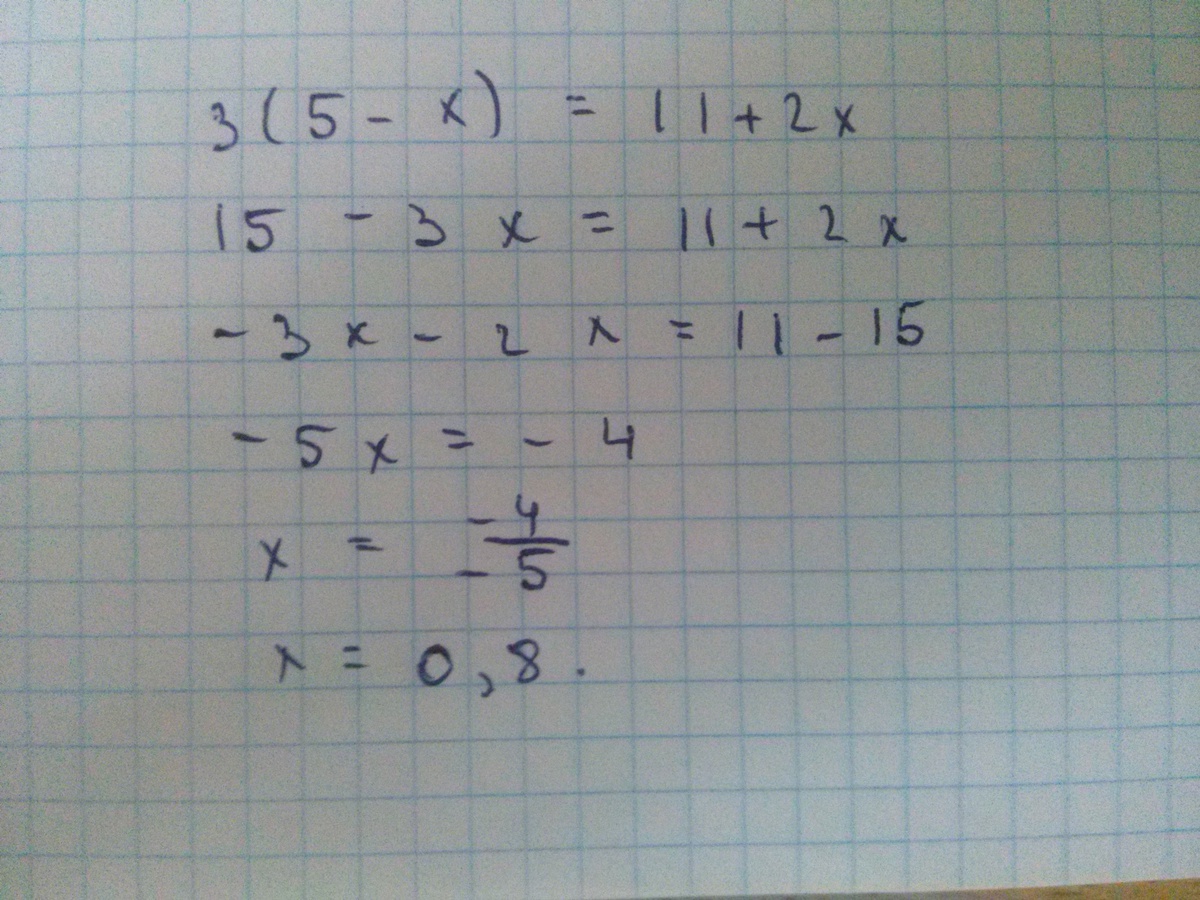 3(5 - x) = 11 + 2x
15 - 3x = 11 + 2x
- 3x - 2x = 11 - 15
- 5x = - 4
x = -4/-5
x = 0,8.